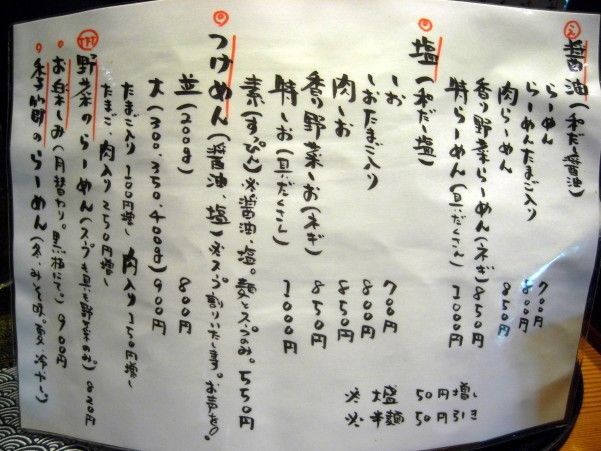 醤油(和だし醤油)
らーめん 700円
らーめんたまご入り 800円
肉らーめん 850円
香り野菜らーめん(ネギ) 850円
特らーめん(具だくさん) 1000円
塩(和だし塩)
しお 700円
しおたまご入り 800円
肉しお 850円
香り野菜しお(ネギ) 850円
特しお(具だくさん) 1000円
素(すっぴん)※醤油、塩。麺とスープのみ。 550円
※ 塩 50円増し
※ 半麺 50円引き
つけめん(醤油、塩)※スープ割りいたします。お声を。
並(200g) 800円
大(300.350.400g) 900円
たまご入り 100円増し 肉入り 150円増し
たまご、肉入り 250円増し
野菜のらーめん(スープも具も野菜のみ) 820円
お楽しみ(月替わり。黒板にて) 900円
季節のらーめん